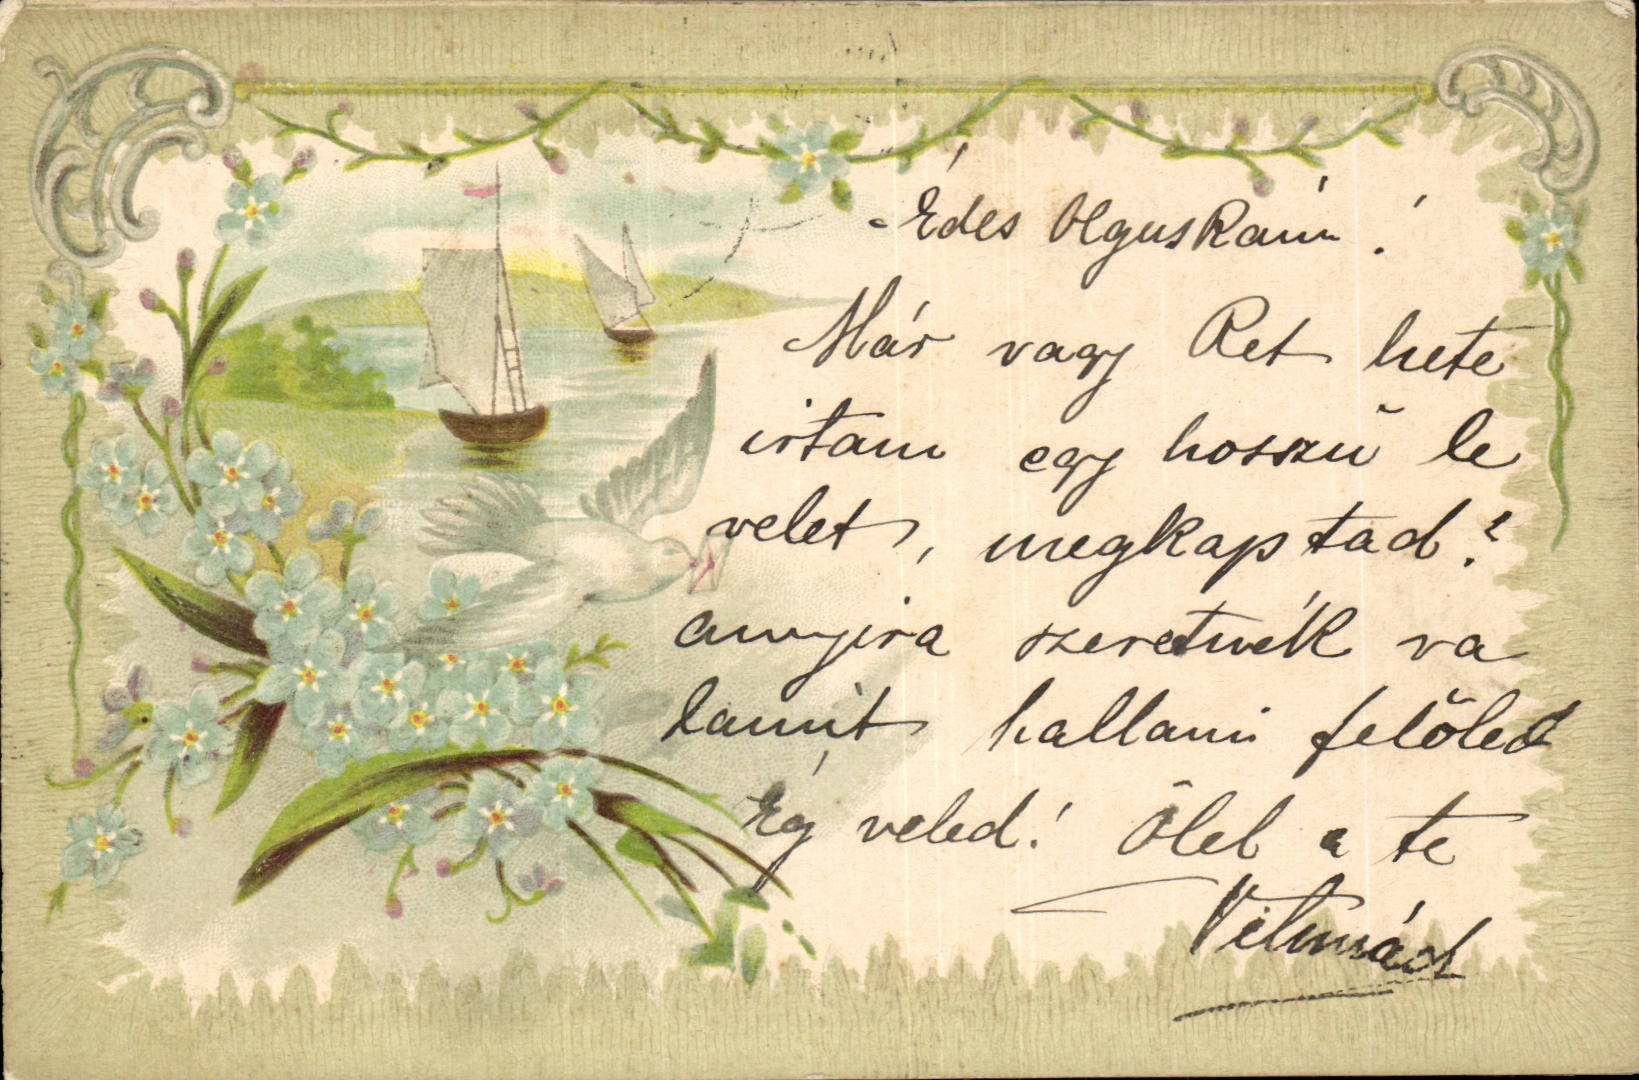 Édes Olguskám!
Már vagy két hete
irtam egy hosszú le
velet, megkaptad?
annyira szeretnék va
lamit hallani felőled
Ég veled! Ölel a te
Vilmád